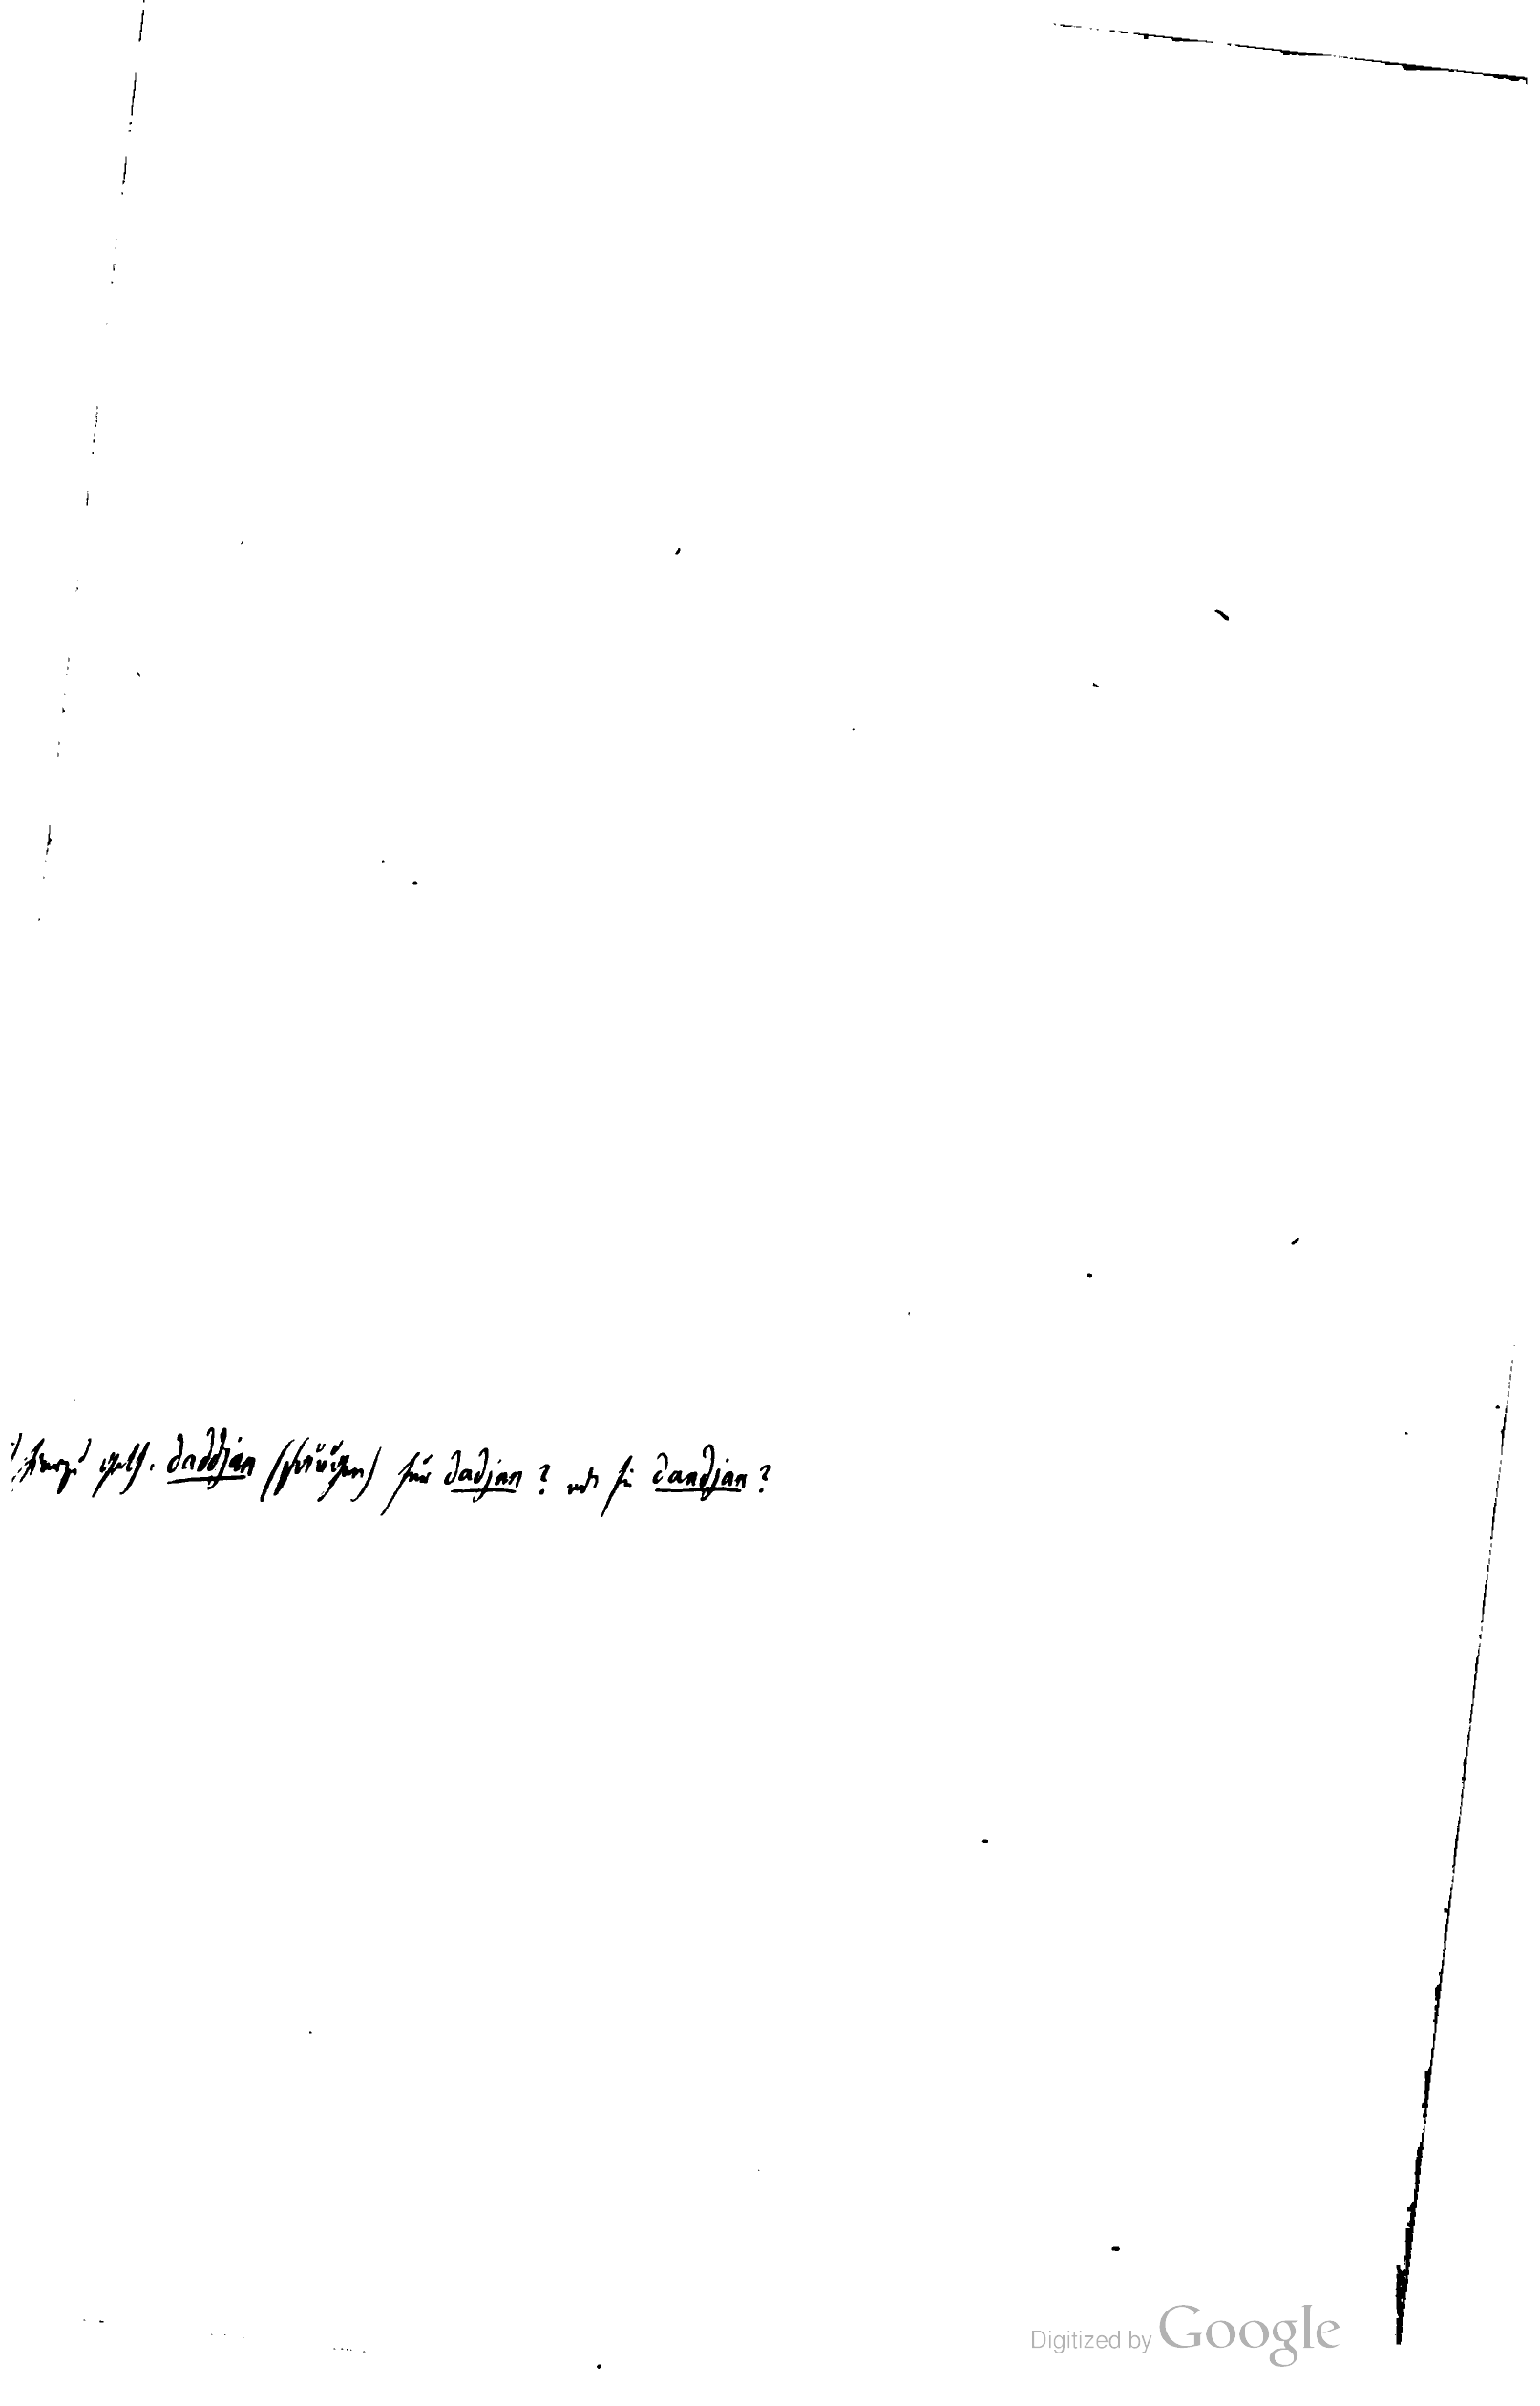 goth. daddjan (säugen) für dadjan? oder für dandjan?
Digitized by Google